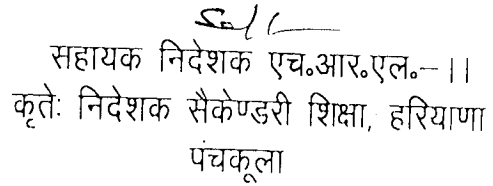 सहायक निदेशक एच॰आर॰एल॰-।।
कृतेः निदेशक सैकेण्डरी शिक्षा, हरियाणा
पंचकूला